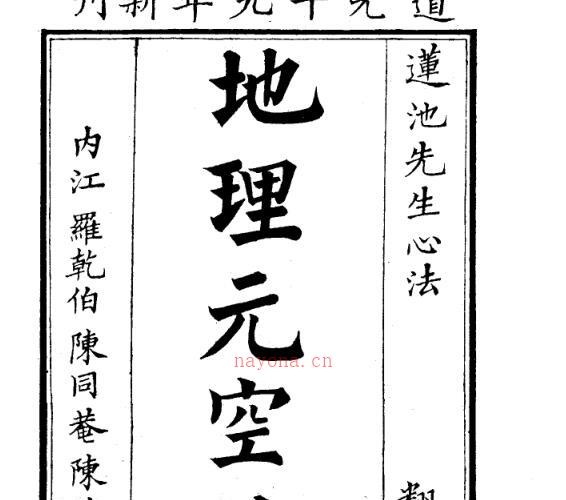 道光十九年新刊
蓮池先生心法
地理元空
内江 羅乾伯 陳同菴 陳
nayona.cn